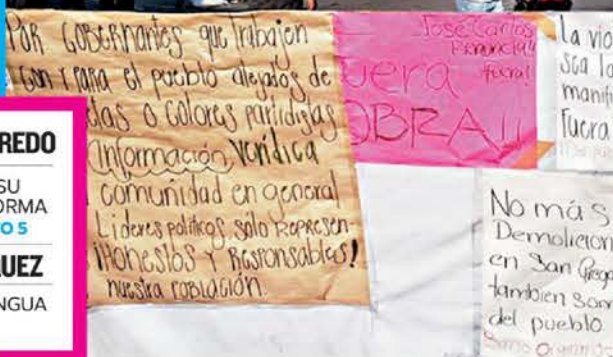 POR GOBERNANTES que Trabajen
con Y para el pueblo alejados de
das o colores partidistas
Información, Verídica
comunidad en general
Lideres políticos, solo Represen-
¡Honestos Y Responsables!
nuestra población.
José Carlos
RENUNCIA!!
fuera!
uera
OBRA!!
La vio
sea la
manif
Fuera
No más
Demolicion
en San Grego
tambien som
del pueblo
REDO
SU
ORMA
O 5
UEZ
NGUA